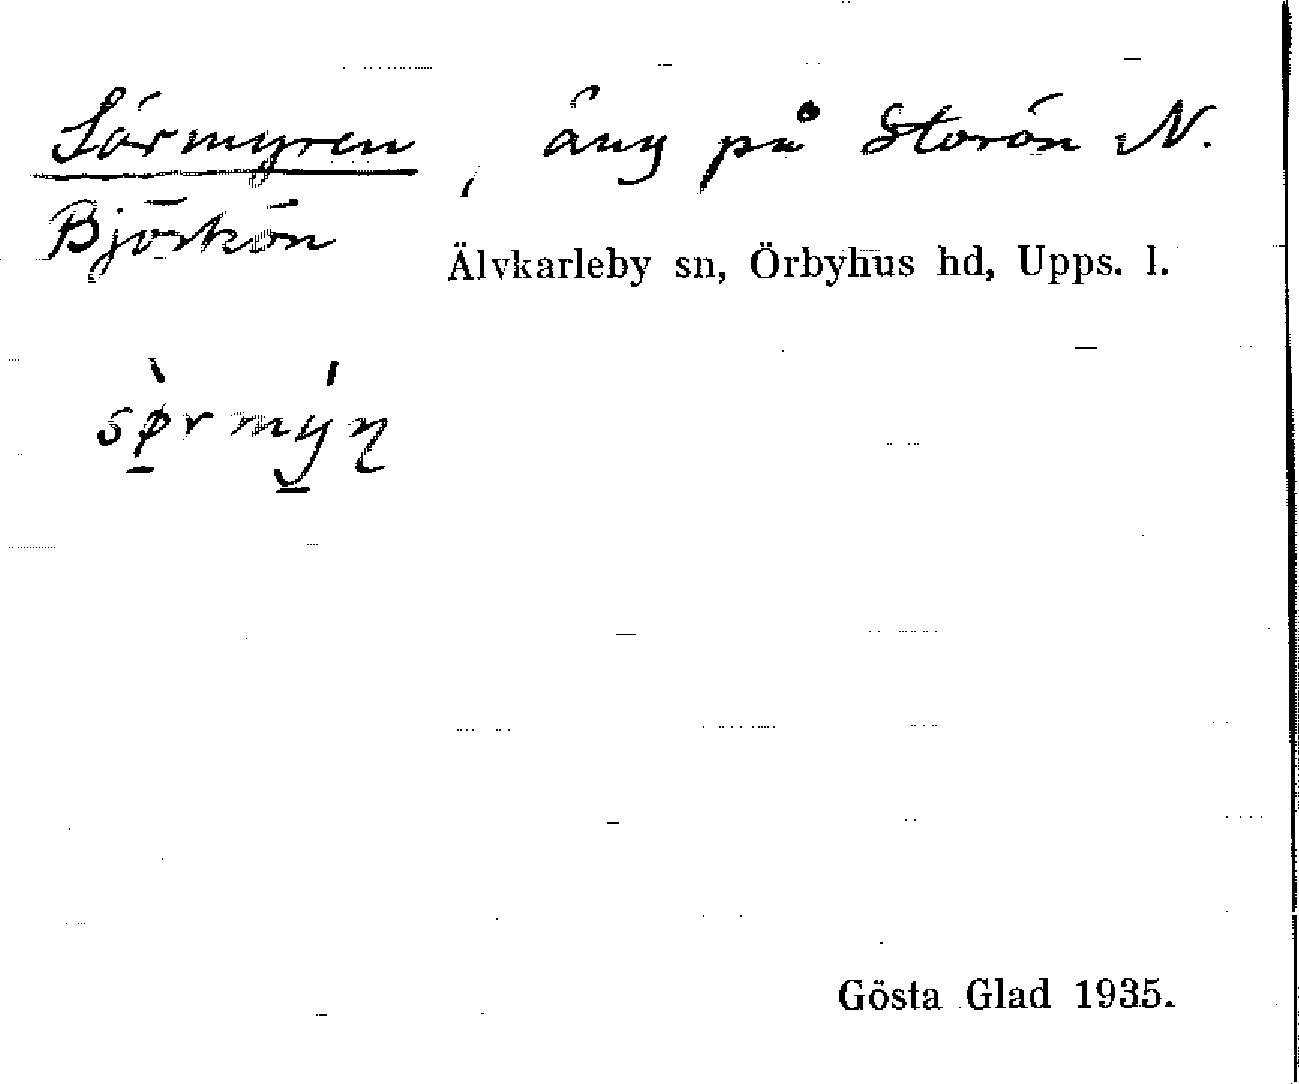 Sörmyren, äng på Storön N.
Björkön
Älvkarleby sn, Örbyhus hd, Upps. l.
Gösta Glad 1935.